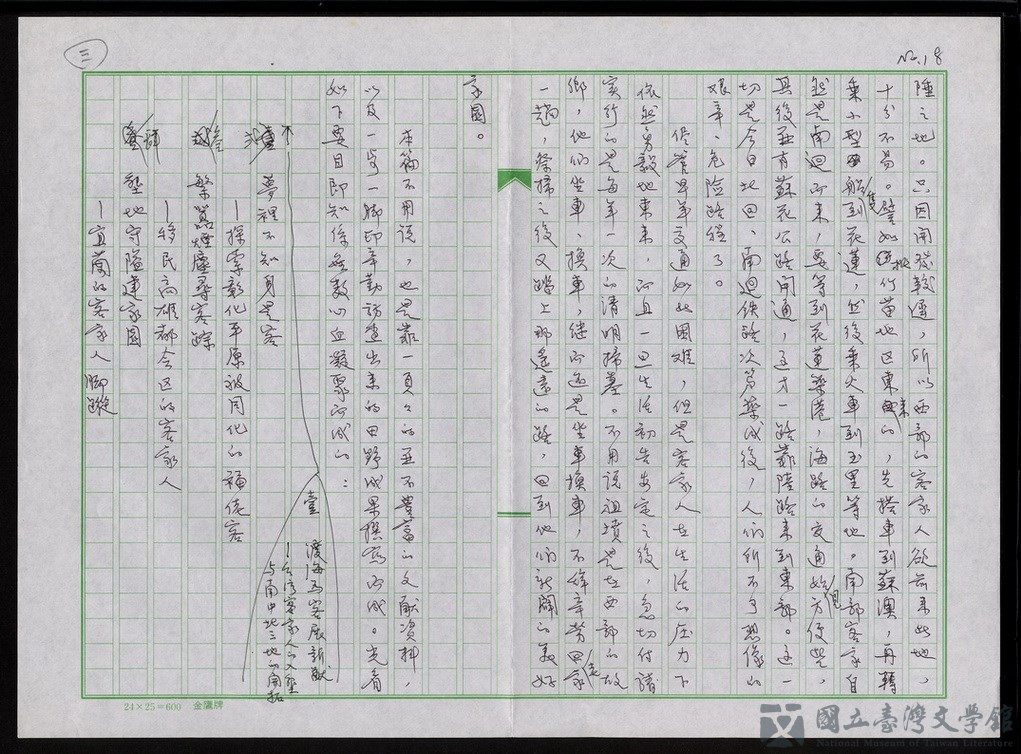 三
No.18
陲之地。只因開發較遲,所以西部的客家人欲前來此地,
十分不易。譬如桃竹苗地区東來的,先搭車到蘇澳,再轉
乘小型船隻到花蓮,然後乘火車到玉里等地。南部客家自
然是南迴而來,要等到花蓮築港,海路的交通始見方便些,
其後並有蘇花公路開通,這才一路靠陸路來到東部。這一
切是今日北回、南迴鉄路次第築成後,人們所不可想像的
艱辛、危險路程了。
儘管早年交通如此困難,但是客家人在生活的压力下
依然勇毅地東來,而且一旦生活初告安定之後,急切付諸
實行的是每年一次的清明掃墓。不用説祖墳是在西部的故
鄉,他們坐車、換車,继而還是坐車換車,不辞辛勞回家
一趟,祭掃之後又踏上那遙遠的路,回到他們新闢的美好
家園。
本篇不用说,也是靠一頁々的並不豊富的文献資料,
以及一步一脚印辛勤訪查出來的田野成果撰寫而成。先看
如下要目即知係無數心血凝聚而成的:
壹 渡海為客展新猷
—台灣客家人的入墾
与南中北三地的開拓
貳 夢裡不知身是客
—探索彰化平原被同化的福佬客
參 繁囂煙塵尋客踪
—移民高雄都会区的客家人
肆 墾地守隘建家園
—宜蘭的客家人脚蹤
24×25=600 金鷹牌
國立臺灣文學館
National Museum of Taiwan Literature